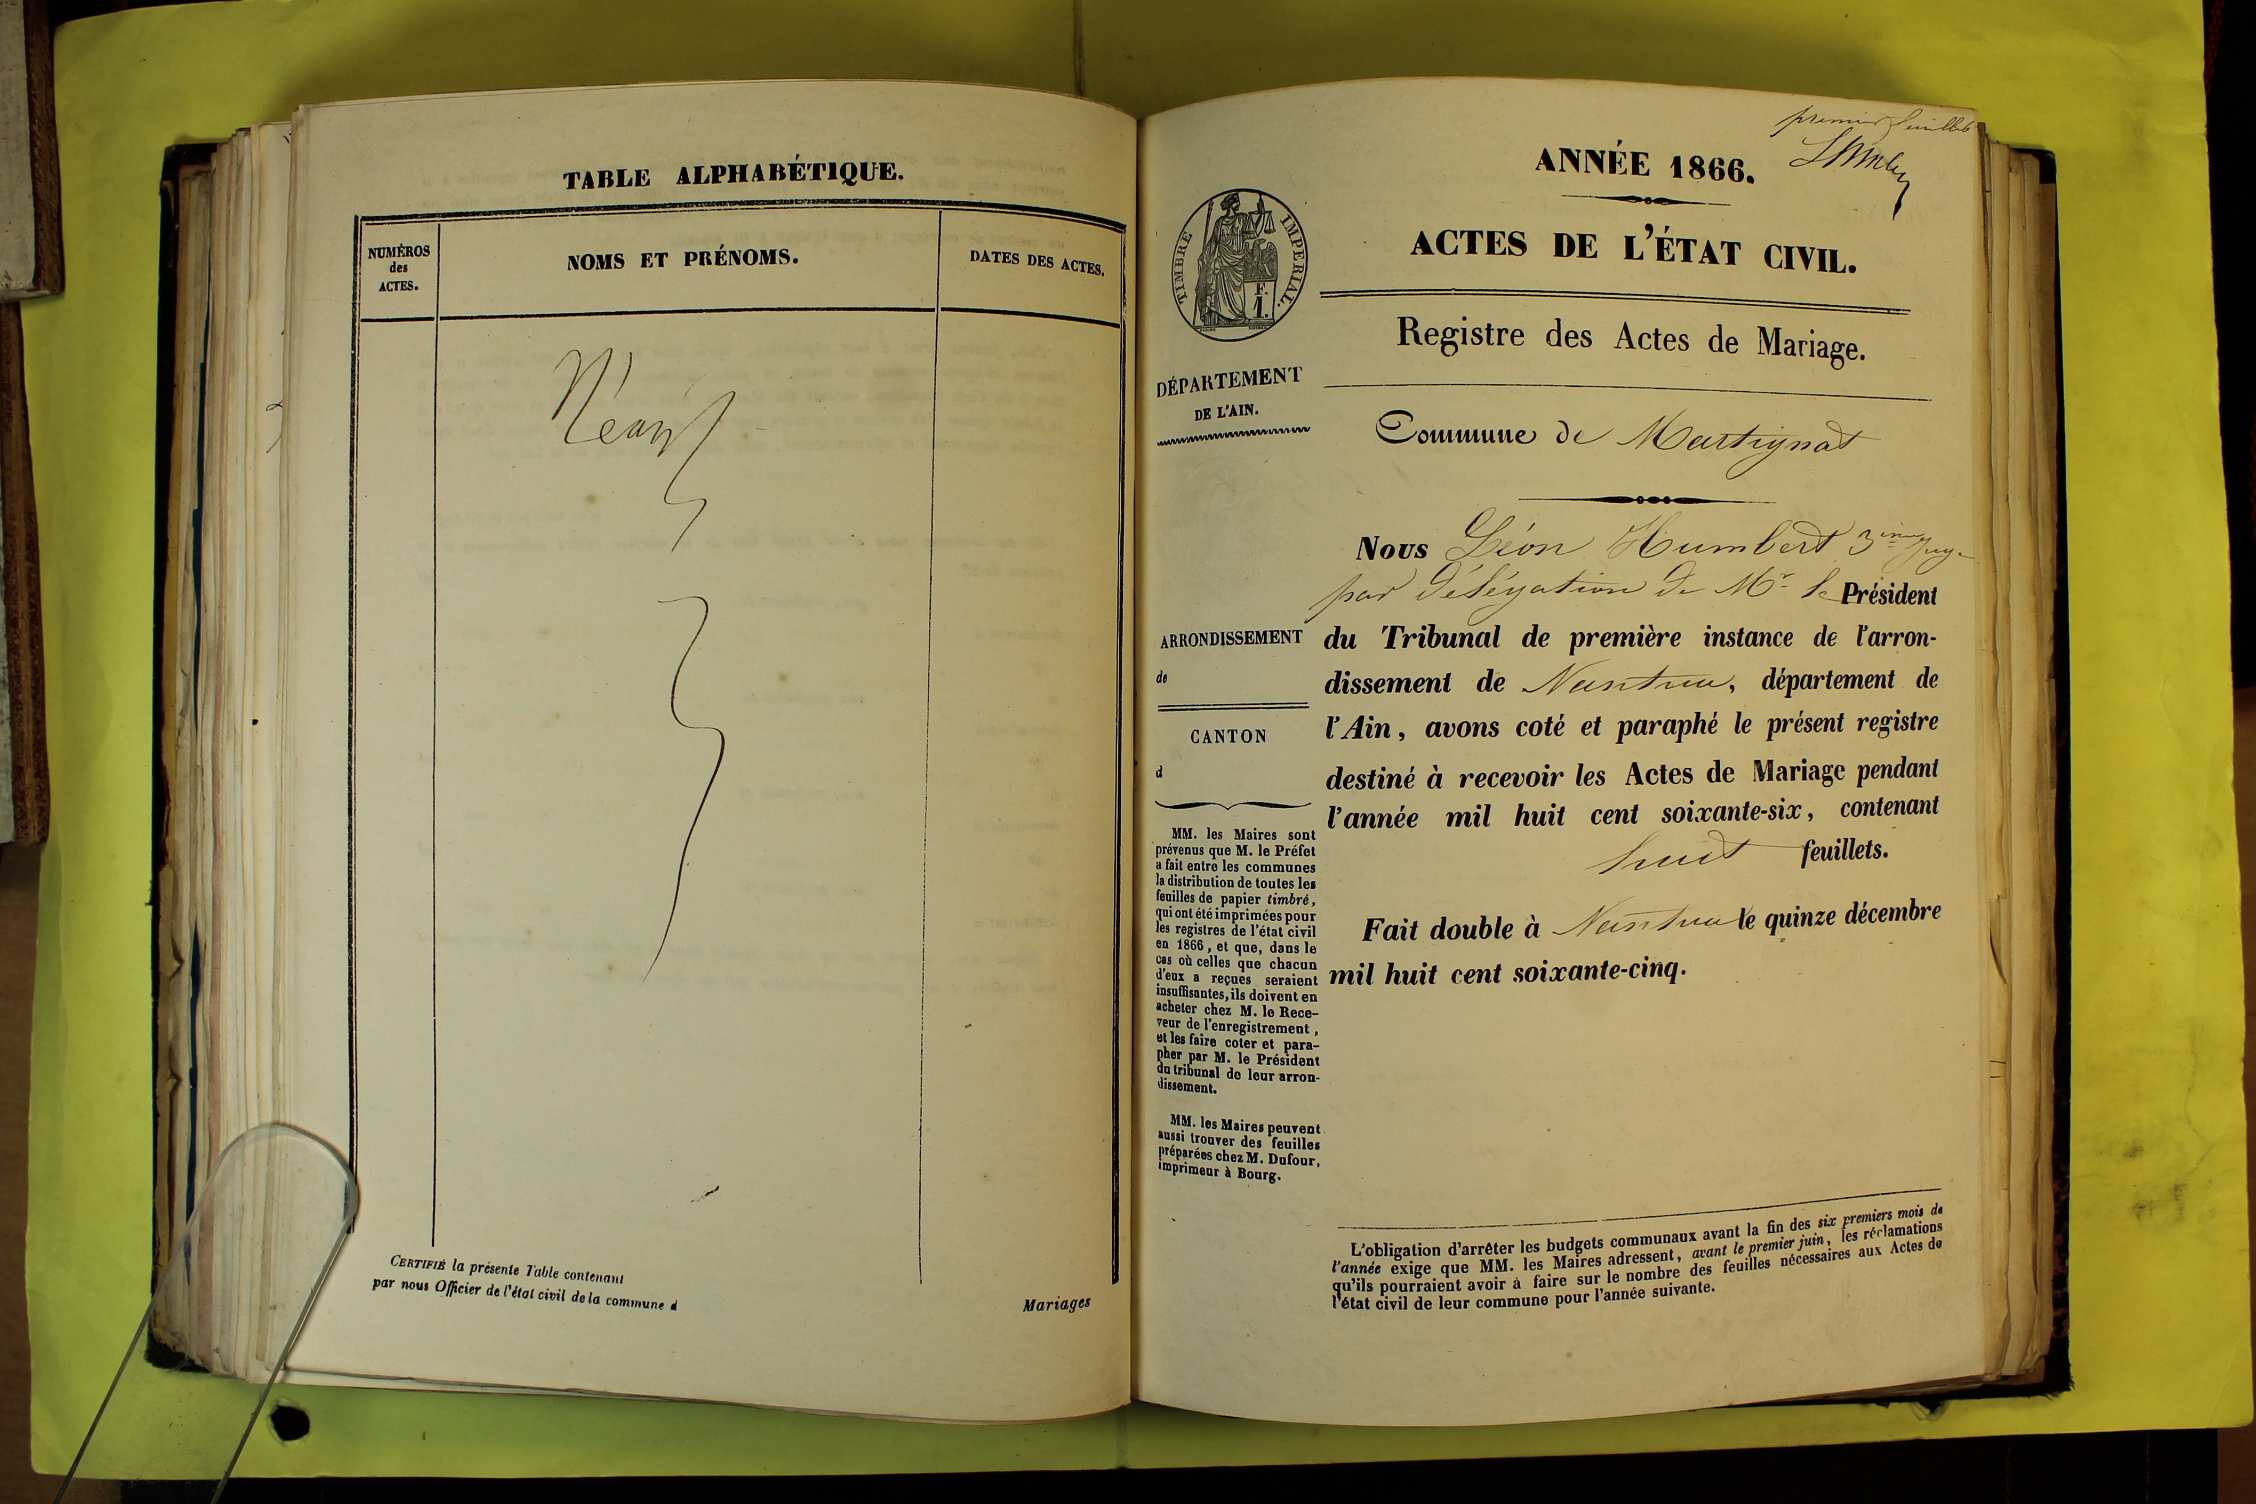 TABLE ALPHABÉTIQUE.
NUMÉROS
des
ACTES.
NOMS ET PRÉNOMS.
DATES DES ACTES.
Néant
CERTIFIÉ la présente Table contenant
par nous Officier de l'état civil de la commune d
Mariages
premier feuillet
ANNÉE 1866.
ACTES DE L'ÉTAT CIVIL.
TIMBRE IMPERIAL.
F.
1.
Registre des Actes de Mariage.
DÉPARTEMENT
DE L'AIN.
Commune de Martignat
Nous Léon Humbert 3ième Juge
par délégation de Mr le Président
du Tribunal de première instance de l'arron-
dissement de Nantua, département de
l'Ain, avons coté et paraphé le présent registre
destiné à recevoir les Actes de Mariage pendant
l'année mil huit cent soixante-six, contenant
huit feuillets.
Fait double à Nantua le quinze décembre
mil huit cent soixante-cinq.
ARRONDISSEMENT
de
CANTON
d
MM. les Maires sont
prévenus que M. le Préfet
a fait entre les communes
la distribution de toutes les
feuilles de papier timbré,
qui ont été imprimées pour
les registres de l'état civil
en 1866, et que, dans le
cas où celles que chacun
d'eux a reçues seraient
insuffisantes, ils doivent en
acheter chez M. le Rece-
veur de l'enregistrement,
et les faire coter et para-
pher par M. le Président
du tribunal de leur arron-
dissement.
MM. les Maires peuvent
aussi trouver des feuilles
préparées chez M. Dufour,
imprimeur à Bourg.
L'obligation d'arrêter les budgets communaux avant la fin des six premiers mois de
l'année exige que MM. les Maires adressent, avant le premier juin, les réclamations
qu'ils pourraient avoir à faire sur le nombre des feuilles nécessaires aux Actes de
l'état civil de leur commune pour l'année suivante.